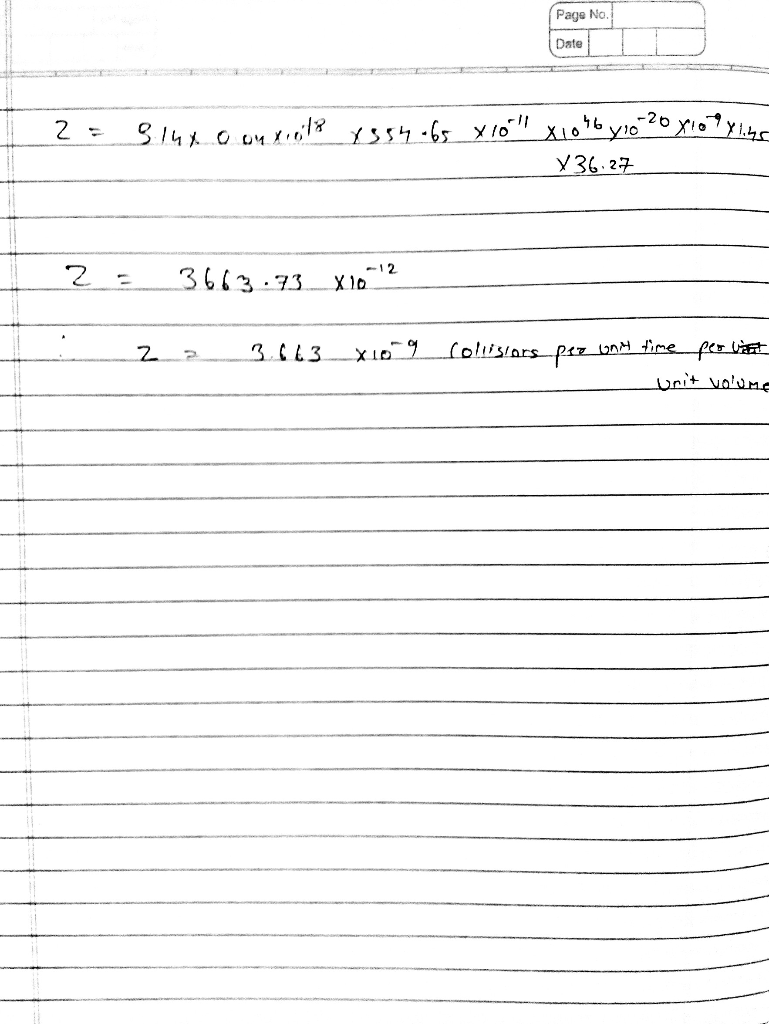 Page No.
Date
Z = 3.14 x 0.04 x 10^-18 x 354.65 x 10^-11 x 10^46 x 10^-20 x 10^-9 x 1.45
x 36.27
Z = 3663.73 x 10^-12
∴ Z = 3.663 x 10^-9 collisions per unit time per unit
unit volume